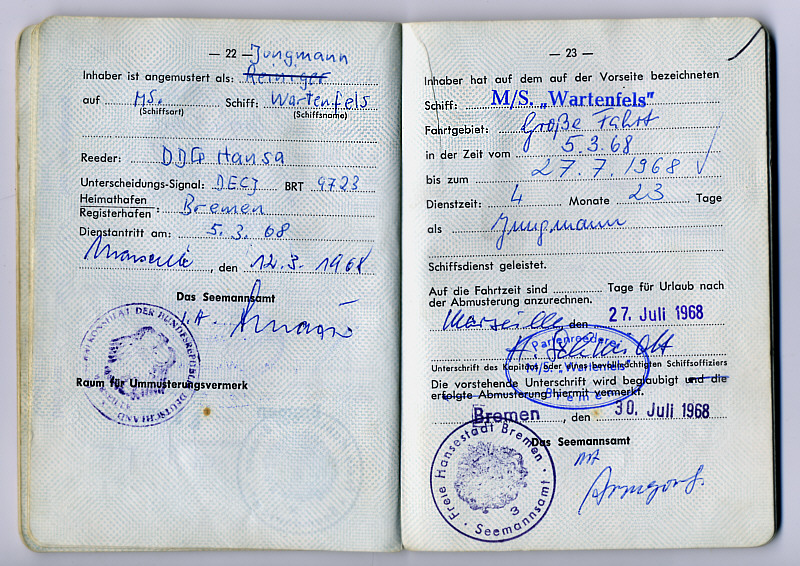 — 22 —
Jungmann
Inhaber ist angemustert als: Reiniger
auf MS. Schiff: Wartenfels
(Schiffsart) (Schiffsname)
Reeder: DDG Hansa
Unterscheidungs-Signal: DECJ BRT 9723
Heimathafen
Registerhafen : Bremen
Dienstantritt am: 5. 3. 68
Marseille, den 12.3. 1968
Das Seemannsamt
I.A.
KONSULAT DER BUNDESREPUBLIK DEUTSCHLAND
Raum für Ummusterungsvermerk
— 23 —
Inhaber hat auf dem auf der Vorseite bezeichneten
Schiff: M/S. „Wartenfels"
Fahrtgebiet: Große Fahrt
in der Zeit vom 5.3.68
bis zum 27.7.1968
Dienstzeit: 4 Monate 23 Tage
als Jungmann
Schiffsdienst geleistet.
Auf die Fahrtzeit sind Tage für Urlaub nach
der Abmusterung anzurechnen.
Marseille, den 27. Juli 1968
Partenreederei
M/S. „Wartenfels"
Bremen
Unterschrift des Kapitäns oder eines bevollmächtigten Schiffsoffiziers
Die vorstehende Unterschrift wird beglaubigt und die
erfolgte Abmusterung hiermit vermerkt.
Bremen, den 30. Juli 1968
Das Seemannsamt
Freie Hansestadt Bremen
3
Seemannsamt